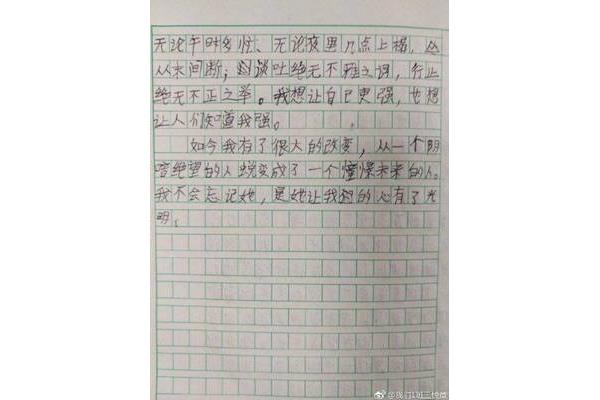 无论午时多忙、无论夜里几点上榻，
从未间断；谈吐绝无不雅之课，行止
绝无不正之举。我想让自己更强，也想
让人们知道我强。
如今我有了很大的改变，从一个阴
暗绝望的人蜕变成了一个憧憬未来的人。
我不会忘记她，是她让我的心有了光
明。
@我们1班三悦茴